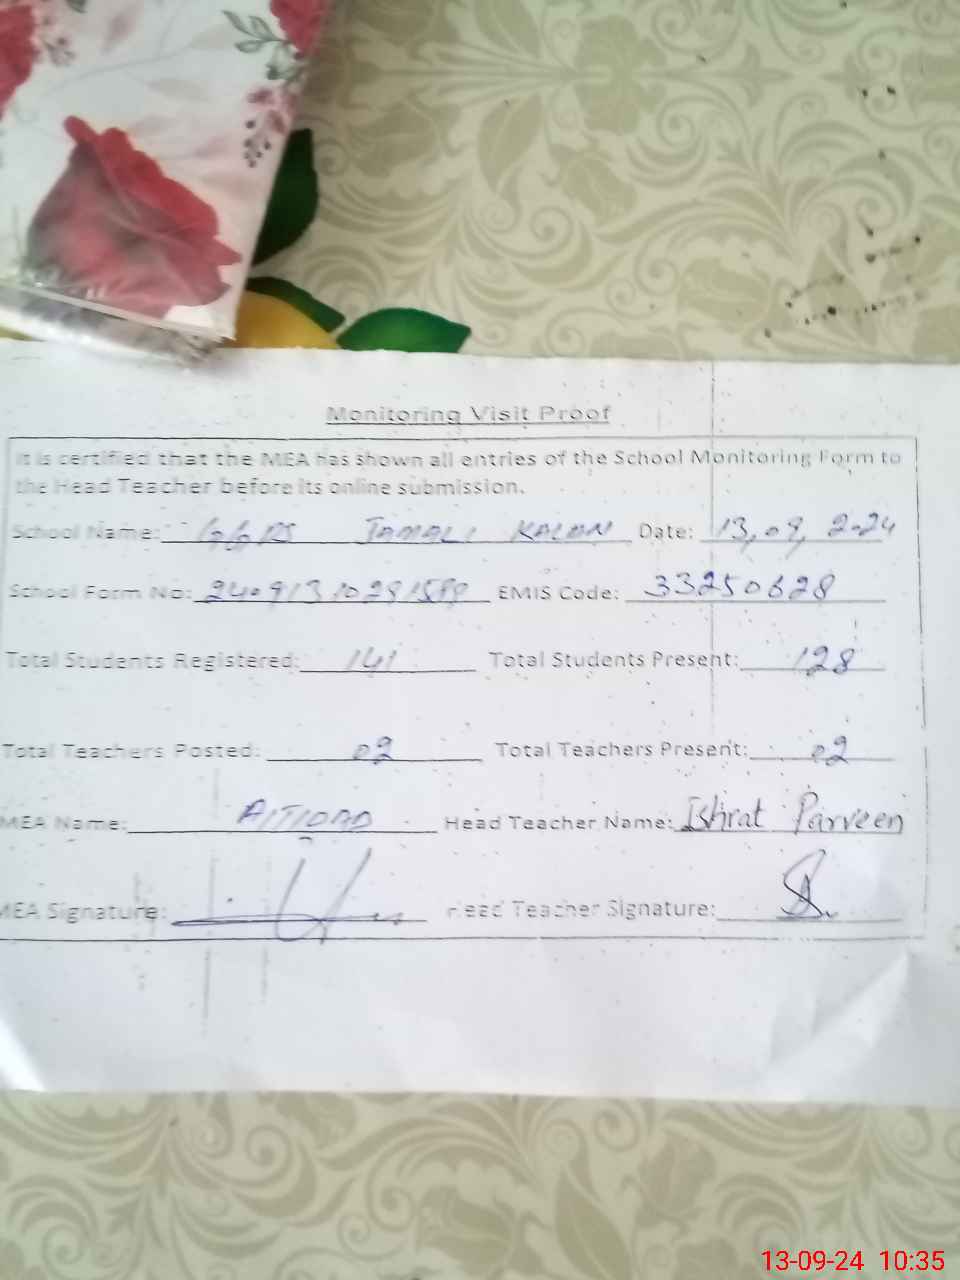 Monitoring Visit Proof
It is certified that the MEA has shown all entries of the School Monitoring Form to
the Head Teacher before its online submission.
School Name: GGPS JAMALI KALAN Date: 13,09,2024
School Form No: EMIS Code: 33250628
Total Students Registered: 141 Total Students Present: 128
Total Teachers Posted: 02 Total Teachers Present: 02
MEA Name: Head Teacher Name: Ishrat Parveen
MEA Signature: Head Teacher Signature:
13-09-24 10:35